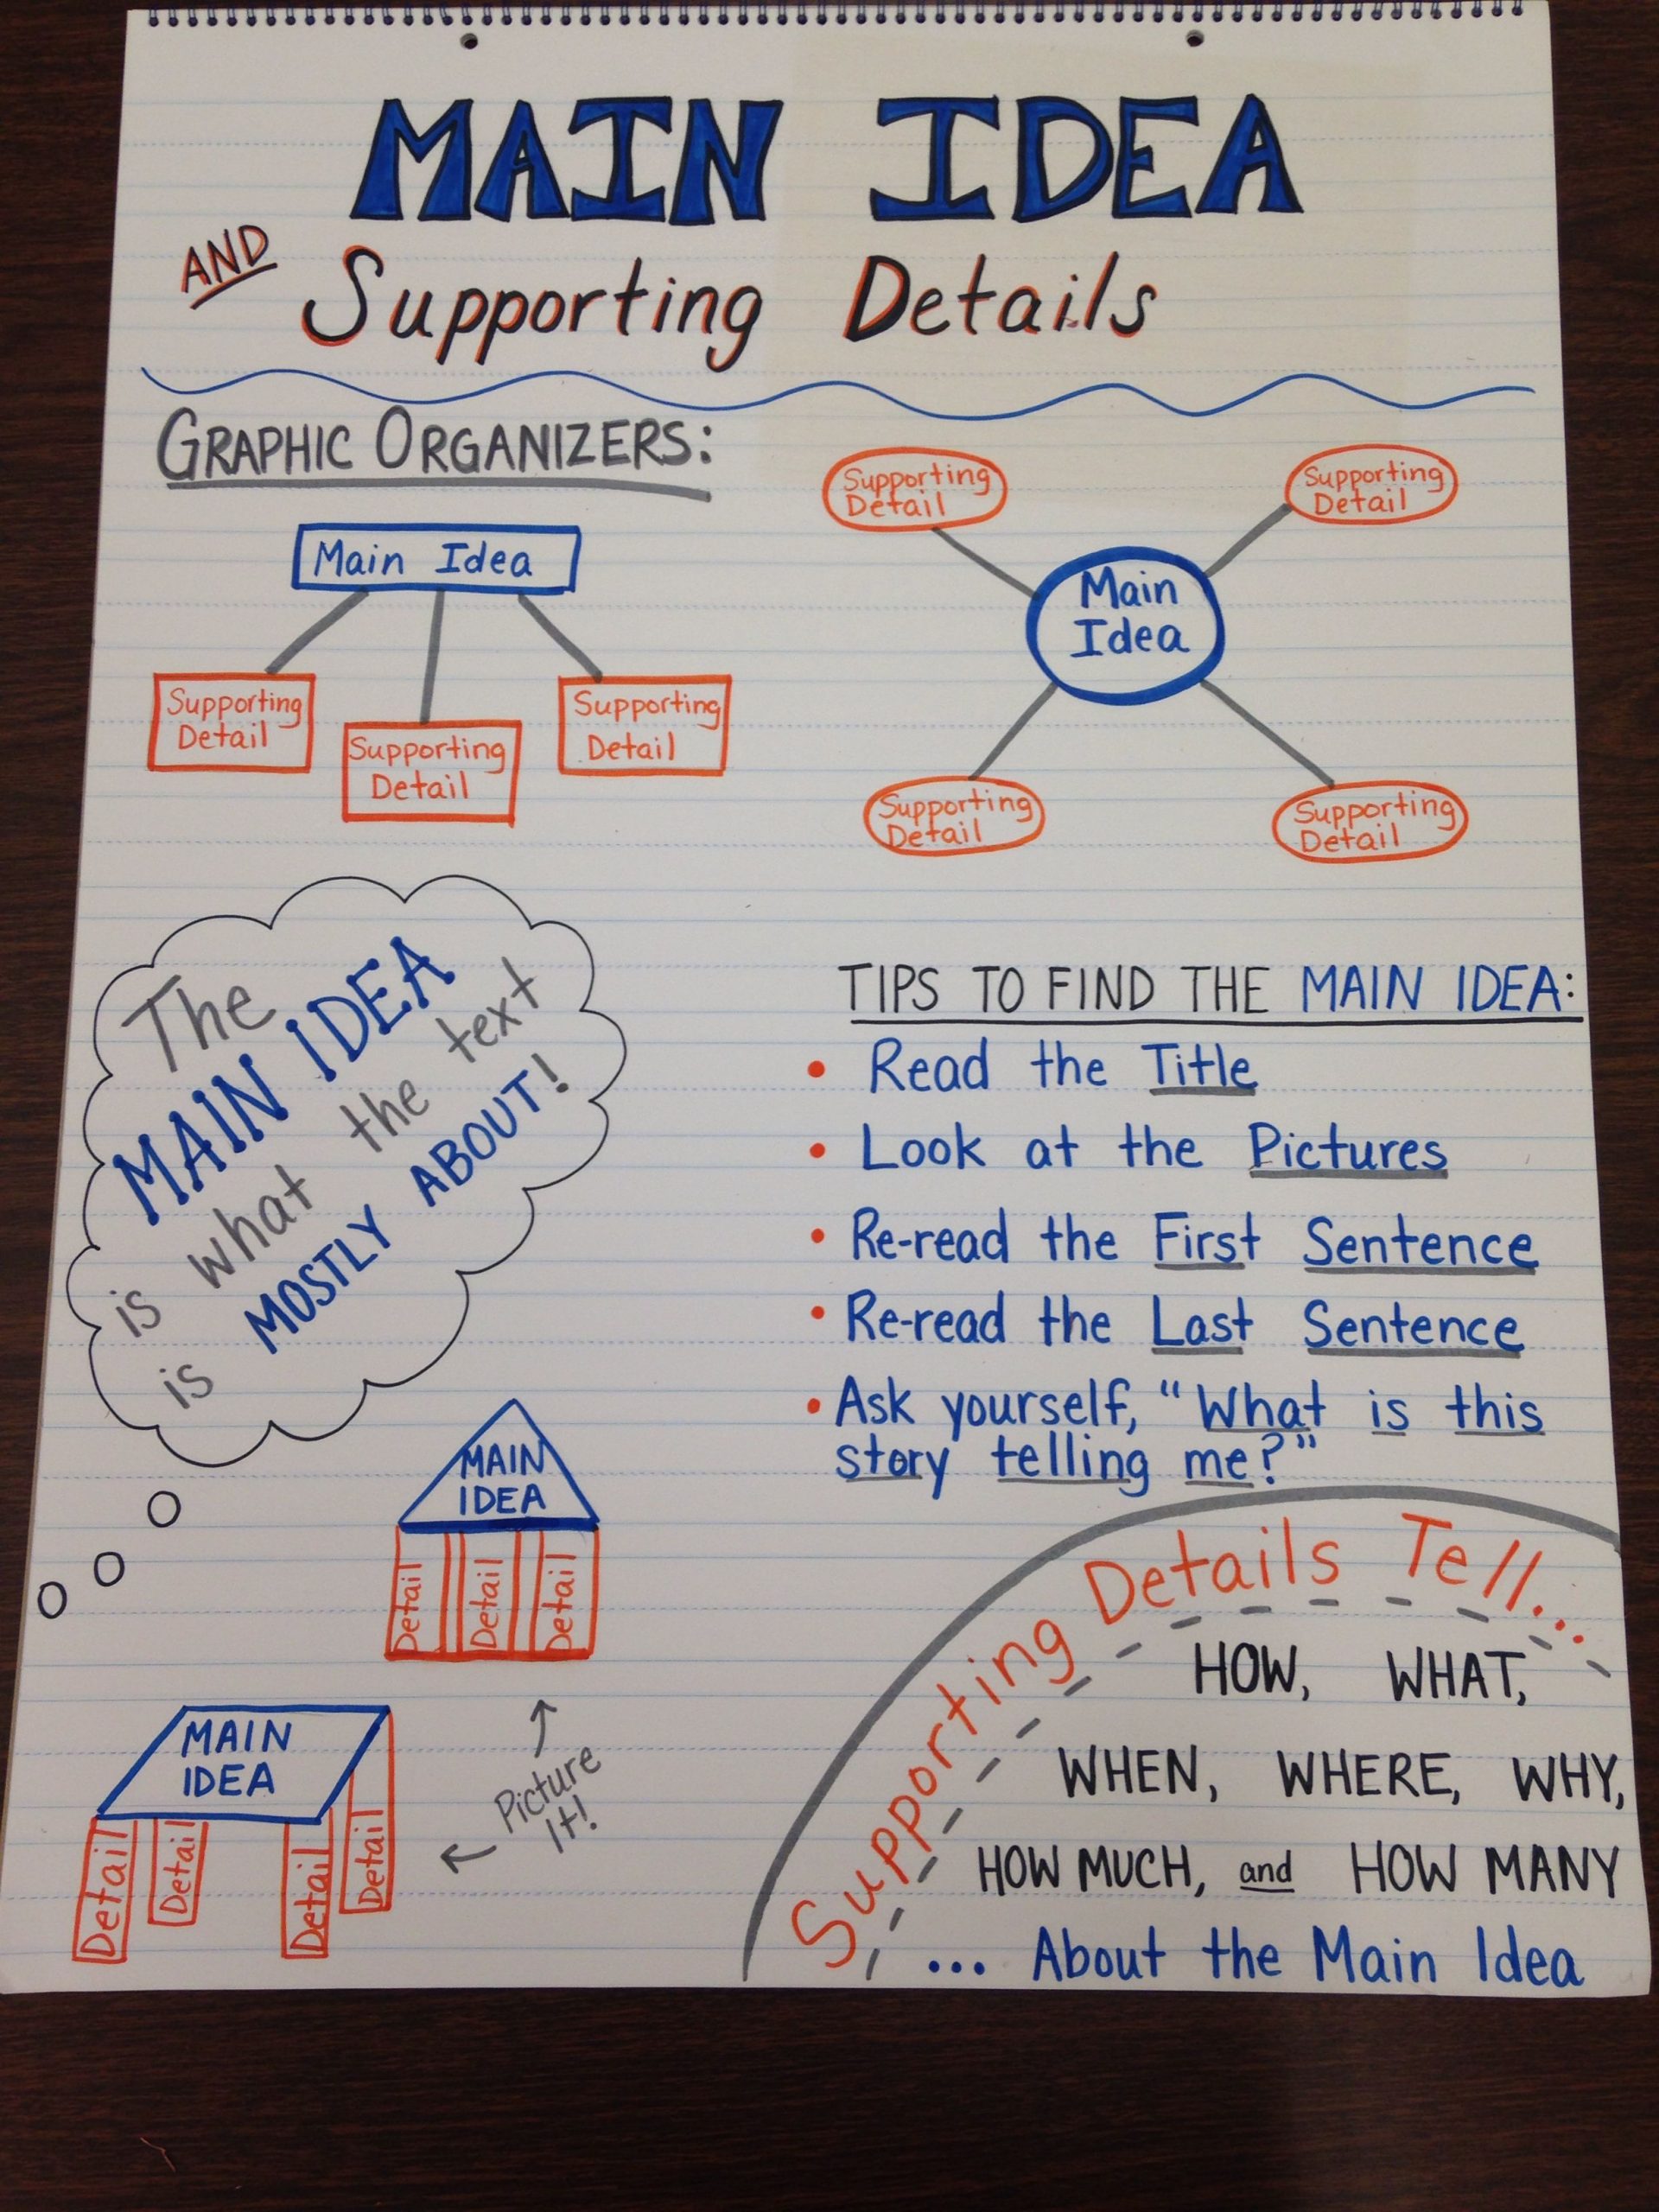 MAIN IDEA
AND
Supporting Details
GRAPHIC ORGANIZERS:
Main Idea
Supporting
Detail
Supporting
Detail
Supporting
Detail
Supporting
Detail
Supporting
Detail
Main
Idea
Supporting
Detail
Supporting
Detail
The
MAIN IDEA
is what the text
is MOSTLY ABOUT!
TIPS TO FIND THE MAIN IDEA:
• Read the Title
• Look at the Pictures
• Re-read the First Sentence
• Re-read the Last Sentence
• Ask yourself, "What is this
story telling me?"
MAIN
IDEA
Detail
Detail
Detail
MAIN
IDEA
Detail
Detail
Detail
Detail
Picture
It!
Supporting Details Tell...
HOW, WHAT,
WHEN, WHERE, WHY,
HOW MUCH, and HOW MANY
... About the Main Idea